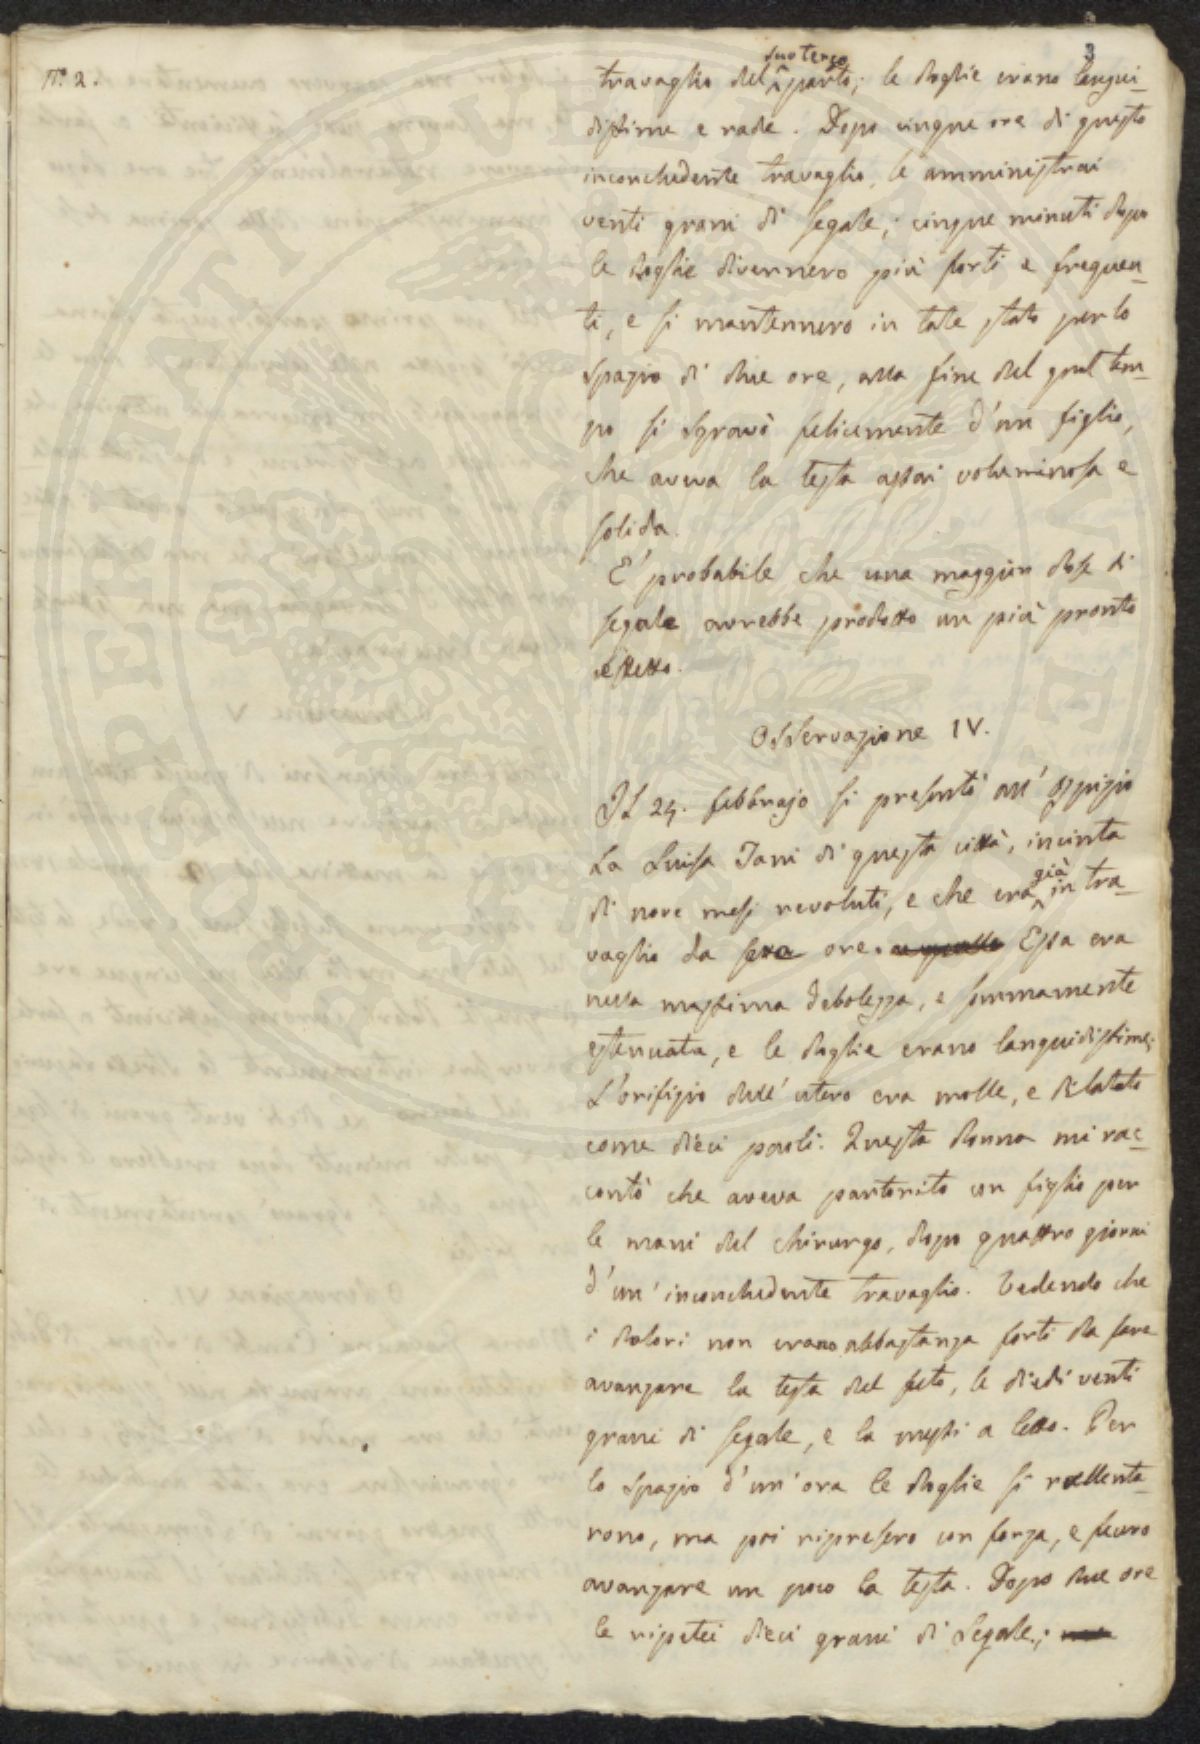 N.° 2.
3
travaglio del suo terzo parto; le doglie erano langui-
dissime e rade. Dopo cinque ore di questo
inconchedente travaglio, le amministrai
venti grani di segale; cinque minuti dopo
le doglie divennero più forti e frequen-
ti, e si mantennero in tale stato per lo
spazio di due ore, alla fine del qual tem-
po si sgravò felicemente d'un figlio,
che aveva la testa assai voluminosa e
solida.
E' probabile che una maggior dose di
segale avrebbe prodotto un più pronto
effetto.
Osservazione IV.
Il 24. febbrajo si presentò all' Ospizio
La Luisa Tani di questa città, incinta
di nove mesi revoluti, e che era già in tra-
vaglio da ore. Essa era
nella massima debolezza, e sommamente
estenuata, e le doglie erano languidissime;
L'orifizio dell' utero era molle, e dilatato
come dieci paoli. Questa donna mi rac-
contò che aveva partorito un figlio per
le mani del chirurgo, dopo quattro giorni
d'un' inconchedente travaglio. Vedendo che
i dolori non erano abbastanza forti da fare
avanzare la testa del feto, le diedi venti
grani di segale, e la messi a letto. Per
lo spazio d'un' ora le doglie si rallenta-
rono, ma poi ripresero con forza, e fecero
avanzare un poco la testa. Dopo due ore
le ripetei dieci grani di Segale;